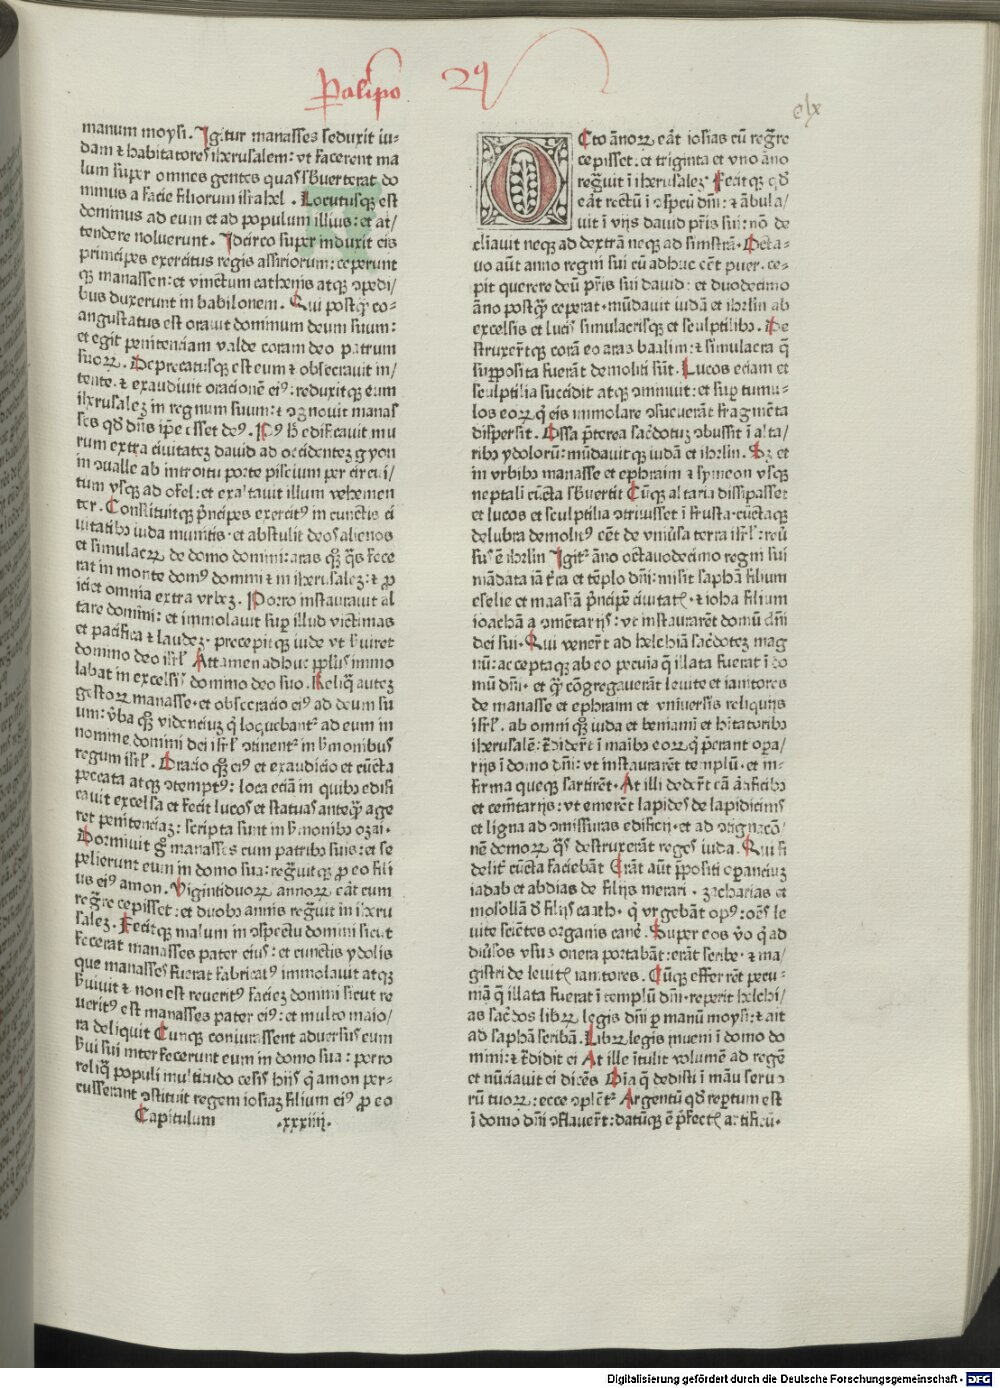 Paralipo 2⁹
clx
manum moysi. Igitur manasses seduxit iu-
dam ⁊ habitatores iherusalem: vt facerent ma
lum super omnes gentes quas sb̾uerterat do
minus a facie filiorum israhel. Locutusqꝫ est
dominus ad eum et ad populum illius: et at/
tendere noluerunt. Idcirco super induxit eis
principes exercitus regis assiriorum: ceperunt
qꝫ manassen: et vinctum cathenis atqꝫ ↄpedi/
bus duxerunt in babilonem. Qui postq̄ƺ co-
angustatus est orauit dominum deum suum:
et egit penitenciam valde coram deo patrum
suoꝝ. Deprecatusqꝫ est eum ⁊ obsecrauit in/
tente. ⁊ exaudiuit oracionē ei⁹: reduxitqꝫ eum
iherusalez in regnum suum: ⁊ ↄgnouit manas
ses qđ dn̄s ip̄e esset de⁹. Post h̄ edificauit mu
rum extra ciuitatez dauid ad occidentez gyon
in ↄualle ab introitu porte piscium per circui/
tum vsqꝫ ad ofel: et exaltauit illum vehemen
ter. Constituitqꝫ p̄ncipes exercit⁹ in cunctis ci
uitatibꝫ iuda munitis: et abstulit deos alienos
et simulacꝝ de domo domini: aras qꝫ q̄s fece
rat in monte dom⁹ domini ⁊ in iherusalez: ⁊ ꝓ
iecit omnia extra vrbez. Porro instaurauit al
tare domini: et immolauit suꝑ illud victimas
et pacifica ⁊ laudez. precepitqꝫ iude vt s̄uiret
domino deo isrl̄. Attamen adhuc ppl̄us immo
labat in excelsis domino deo suo. Reliq̄ autez
gestoꝝ manasse. et obsecracio ei⁹ ad deum su
um: v̄ba qꝫ videntiuz q̄ loquebant̄ ad eum in
nomine domini dei isrl̄ ↄtinent̄ in s̄monibus
regum isrl̄. Oracio qꝫ ei⁹ et exaudicio et cūcta
peccata atqꝫ ↄtempt⁹: loca eciam in quibꝫ edifi
cauit excelsa et fecit lucos et statuas anteq̄ƺ age
ret penitenciaz: scripta sunt in s̄monibꝫ ozai.
Dormiuit g̊ manasses cum patribꝫ suis: et se
pelierunt eum in domo sua: regn̄uitqꝫ ꝓ eo fili
us ei⁹ amon. Vigintiduoꝝ annoꝝ eāt cum
regn̄re cepisset: et duobꝫ annis regn̄uit in iheru
salez. Fecitqꝫ malum in ↄspectu domini sicut
fecerat manasses pater eius: et cunctis ydolis
que manasses fuerat fabricat⁹ immolauit atqꝫ
s̄uiuit ⁊ non est reuerit⁹ faciez domini sicut re
uerit⁹ est manasses pater ei⁹: et multo maio/
ra deliquit Cunqꝫ coniurassent aduersus eum
s̄ui sui interfecerunt eum in domo sua: porro
reliq̄ populi multitudo cesis hijs q̄ amon per-
cusserant ↄstituit regem iosiaz filium ei⁹ ꝓ eo
Capitulum .xxxiiij.
OCto ānoꝝ eāt iosias cū regn̄re
cepisset. et triginta et vno āno
regn̄uit ī iherusalez. Fecitqꝫ qđ
eāt rectū ī ↄspcū dn̄i: ⁊ ābula/
uit ī vijs dauid pr̄is sui: nō de
cliauit neqꝫ ad dextrā neqꝫ ad sinistrā. Octa-
uo aūt anno regni sui cū adhuc eēt puer. ce-
pit querere deū pr̄is sui dauid: et duodecimo
āno postq̄ƺ ceperat. mūdauit iudā et ihrl̄m ab
excelsis et lucis simulacrisqꝫ et sculptilibꝫ. De
struxer̄tqꝫ corā eo aras baalim: ⁊ simulacra q̄
suꝑposita fuerāt demoliti sūt. Lucos eciam et
sculptilia succidit atqꝫ ↄminuit: et suꝑ tumu-
los eoꝝ q̄ eis immolare ↄsueuerāt fragmēta
dispersit. Ossa p̄terea sac̄dotuꝫ ↄbussit ī alta/
ribꝫ ydolorū: mūdauitqꝫ iudā et ihrl̄m. Sꝫ et
in vrbibꝫ manasse et ephraim ⁊ symeon vsqꝫ
neptali cūcta sb̄uertit Cūqꝫ altaria dissipasset
et lucos et sculptilia ↄtriuisset ī frusta. cūctaqꝫ
delubra demolit⁹ eēt de vniūsa terra isrl̄: reū
sus ē ihrl̄m Igit̄ āno octauodecimo regni sui
mādata iā tr̄ra et tēplo dn̄i: misit saphā filium
eselie et maasiā p̄ncipē ciuitatꝭ. ⁊ ioha filium
ioachaꝫ a ↄmētarijs: vt instaurarēt domū dn̄i
dei sui. Qui vener̄t ad helchiā sac̄dotez mag
nū: acceptaqꝫ ab eo pecuia q̄ illata fuerat ī do
mū dn̄i. et q̄ƺ cōgregauerāt leuite et ianitores
de manasse et ephraim et vniuersis reliquijs
isrl̄. ab omni qꝫ iuda et beniami et hītatoribꝫ
iherusalē: tr̄dider̄t ī maībꝫ eoꝝ q̄ p̄erant oꝑa/
rijs ī domo dn̄i: vt instaurarēt templū. et in-
firma queqꝫ sartirēt. At illi deder̄t eā ārficibꝫ
et cem̄tarijs: vt emerēt lapides de lapidicinis
et ligna ad ↄmissuras edificij. et ad ↄtignacō/
nē domoꝝ q̄s destruxerāt reges iuda. Qui fi
delit̄ cūcta faciebāt Erāt aūt p̄positi oꝑanciuꝫ
iadab et abdias de filijs merari. zacharias et
mosollā đ filijs caath. q̄ vrgebāt op⁹: oēs le
uite sciētes organis canē. Super eos v̊o q̄ ad
diūsos vsus onera portabāt: erāt scribe. ⁊ ma/
gistri de leuitꝭ ianitores. Cūqꝫ efferrēt pecu-
niā q̄ illata fuerat ī templū dn̄i. reperit helchi/
as sac̄dos libꝝ legis dn̄i ꝑ manū moysi: ⁊ ait
ad saphā scribā. Libꝝ legis inueni ī domo do
mini: ⁊ tr̄didit ei At ille ītulit volumē ad regē
et nūciauit ei dicēs Oīa q̄ dedisti ī māu seruo
rū tuoꝝ: ecce ↄplēt̄ Argentū qđ reꝑtum est
ī domo dn̄i ↄflauer̄t: datūqꝫ ē p̄fectꝭ artificū.
Digitalisierung gefördert durch die Deutsche Forschungsgemeinschaft - DFG